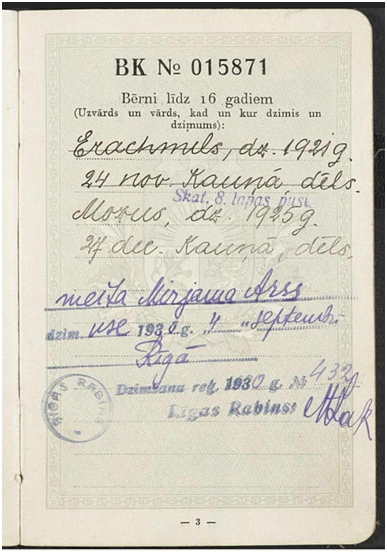 BK № 015871
Bērni līdz 16 gadiem
(Uzvārds un vārds, kad un kur dzimis un
dzimums):
Erachmels, dz. 1921 g.
24 nov. Kauņā, dēls.
Skat. 8. lapas pusi
Mozus, dz. 1925 g.
27 dec. Kauņā, dēls.
meita Mirjama
dzim. 1930. g. „4“ septembrī
Rīgā
Dzimšanu reģ. 1930 g. №
Rīgas Rabīns:
RĪGAS RABINS
— 3 —